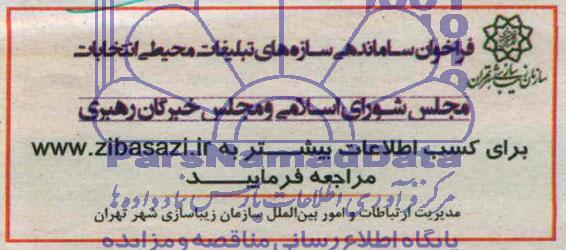 فراخوان ساماندهی سازه‌های تبلیغات محیطی انتخابات
سازمان زیباسازی شهر تهران
مجلس شورای اسلامی و مجلس خبرگان رهبری
برای کسب اطلاعات بیشتر به www.zibasazi.ir
مراجعه فرمایید
ParsNamadData
مرکز فرآوری اطلاعات پارس نماد داده ها
مدیریت ارتباطات و امور بین‌الملل سازمان زیباسازی شهر تهران
پایگاه اطلاع رسانی مناقصه و مزایده